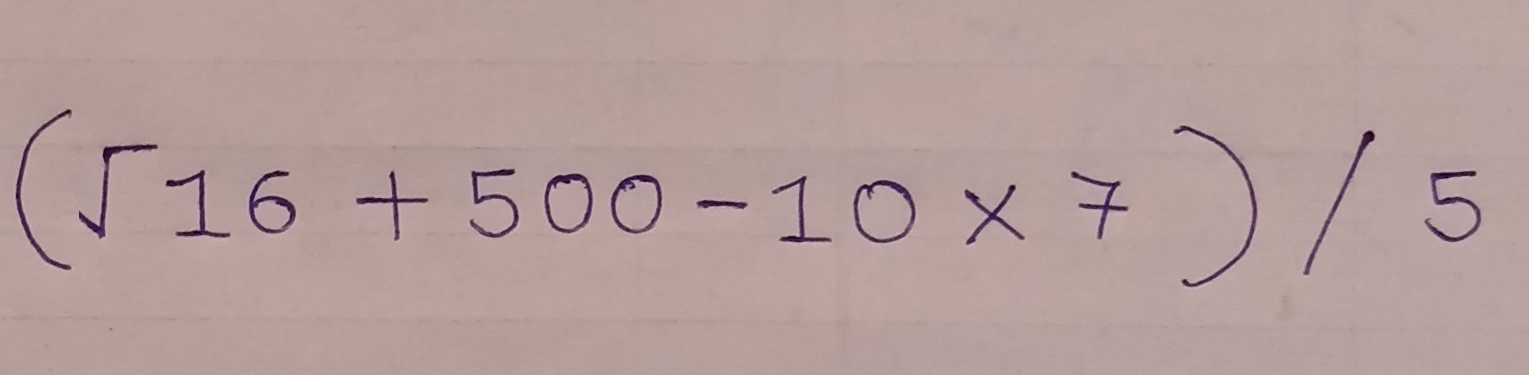 (√16 + 500 - 10 × 7) / 5